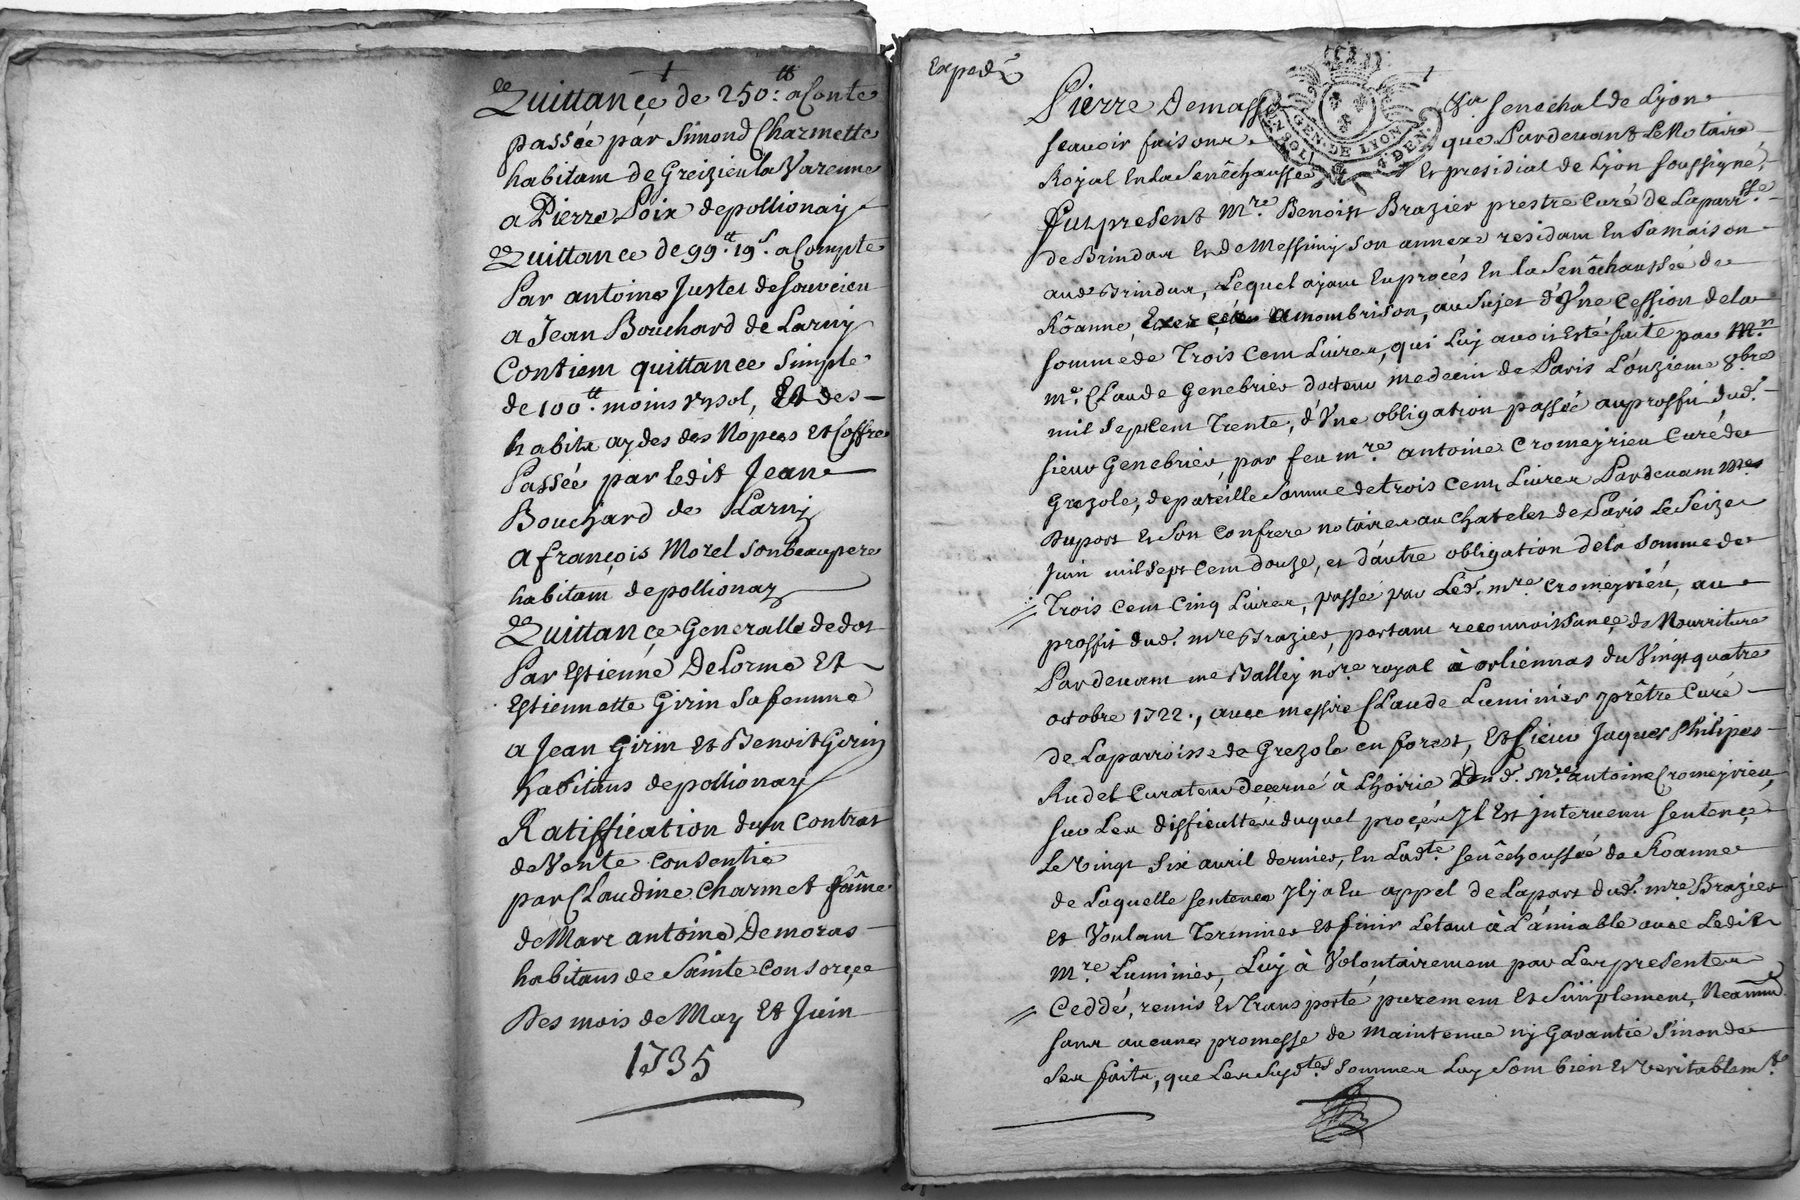 Quittançe de 250:tt aConte
passée pár Simond Charmette
habitam de Greizieu la Varenne
a Pierre Loix depollionay
Quittance de 99.tt 19.s aCompte
Par antoine Juster deSouvcieu
a Jean Bouchard de Larny
Contiem quittance Simple
de 100.tt moins vnsol, Et des
habits aydes des Nopces Et Coffre
Passée par ledit Jean
Bouchard de Larny
a françois Morel sonbeaupere
habitam depollionay
Quittançe Generalle dedot
Par Estienne Delorme Et
Estiennette Girin Safemme
a Jean Girin Et Benoit Girin
habitans depollionay
Ratiffication dun Contrat
deVente Consentie
par Claudine Charmet fame
deMarc antoine Demoras
habitans de Sainte Consorçe
Des mois de May Et Juin
1735
Expedé
Pierre Demasso Sr. Senechal de Lyon
scavoir faisons que Pardevant Le Notaire
Royal En la Senêchaussée Et presidial de Lyon soussigné,
GEN. DE LYON
DEN.
Fut present Mre. Benoist Brazier prestre Curé de Laparr.sse
de Brindas Et de Messimy Son annexe residam En Samaison
aud. Brindas, Lequel ayam Euprocés En la Senêchaussée de
Rôanne Exercée a mombrison, au Sujet d'Vne Cession dela
somme de Trois Cem Livres, qui Luy avoit Esté faite par M.n
me. Claude Genebrier docteur medecin de Paris L'onzieme 8bre
mil Septcem Trente, d'Vne obligation passée auproffit dud.
Sieur Genebrier, par feu mre. antoine Cromeyrieu Curé de
Grezole, de pareille Somme de trois Cem Livres Pardevam mes
Duport Et Son Confrere notaires au Chatelet de Paris Le Seize
Juin mil Sept Cem douze, et d'autre obligation dela Somme de
Trois cem Cinq Livres, passée par Led. mre. Cromeyrieu, au
proffit dud. mre Brazier, portam reconnoissançe de Nourriture
Pardevam me Balley nore. royal à orliennas du Vingt quatre
octobre 1722., avec messire Claude Luminier prêtre Curé
de Laparroisse de Grezole en forest, Et Sieur Jaques Philipes
Rudel Curateur Deçerné à L'hoirie Dud. mre. antoine Cromeyrieu,
sur Les difficultes duquel proçés Jl Est jntervenu sentençe
Le Vingt Six avril dernier, En Ladte. senêchoussée de Roanne
de Laquelle sentence Jlya Eu appel de Lapart dud. mre. Brazier
Et Voulam Terminer Et finir Letout à L'amiable avec Ledit
Mre. Luminier, Luy à Volontairemem par Les presentes
Ceddé, remis Et Transporté, puremem Et Simplement, Neanmd.
sans aucune promesse de maintenue ny Garantie Sinon de
Ses faits, que Les Susdtes. Sommes Luy Som bien Et Veritablemt.